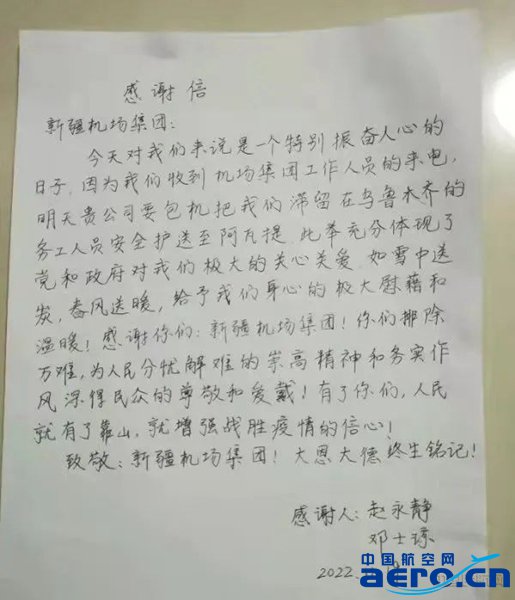 感谢信
新疆机场集团：
今天对我们来说是一个特别振奋人心的
日子，因为我们收到机场集团工作人员的来电，
明天贵公司要包机把我们滞留在乌鲁木齐的
务工人员安全护送至阿瓦提。此举充分体现了
党和政府对我们极大的关心关爱，如雪中送
炭，春风送暖，给予我们身心的极大慰藉和
温暖！感谢你们：新疆机场集团！你们排除
万难，为人民分忧解难的崇高精神和务实作
风深得民众的尊敬和爱戴！有了你们，人民
就有了靠山，就增强战胜疫情的信心！
致敬：新疆机场集团！大恩大德终生铭记！
感谢人：赵永静
邓士
2022.
中国航空网
aero.cn